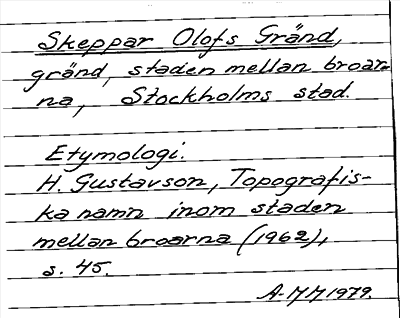 Skeppar Olofs Gränd,
gränd, staden mellan broar-
na, Stockholms stad.
Etymologi.
H. Gustavson, Topografis-
ka namn inom staden
mellan broarna (1962),
s. 45.
A-MM 1979.